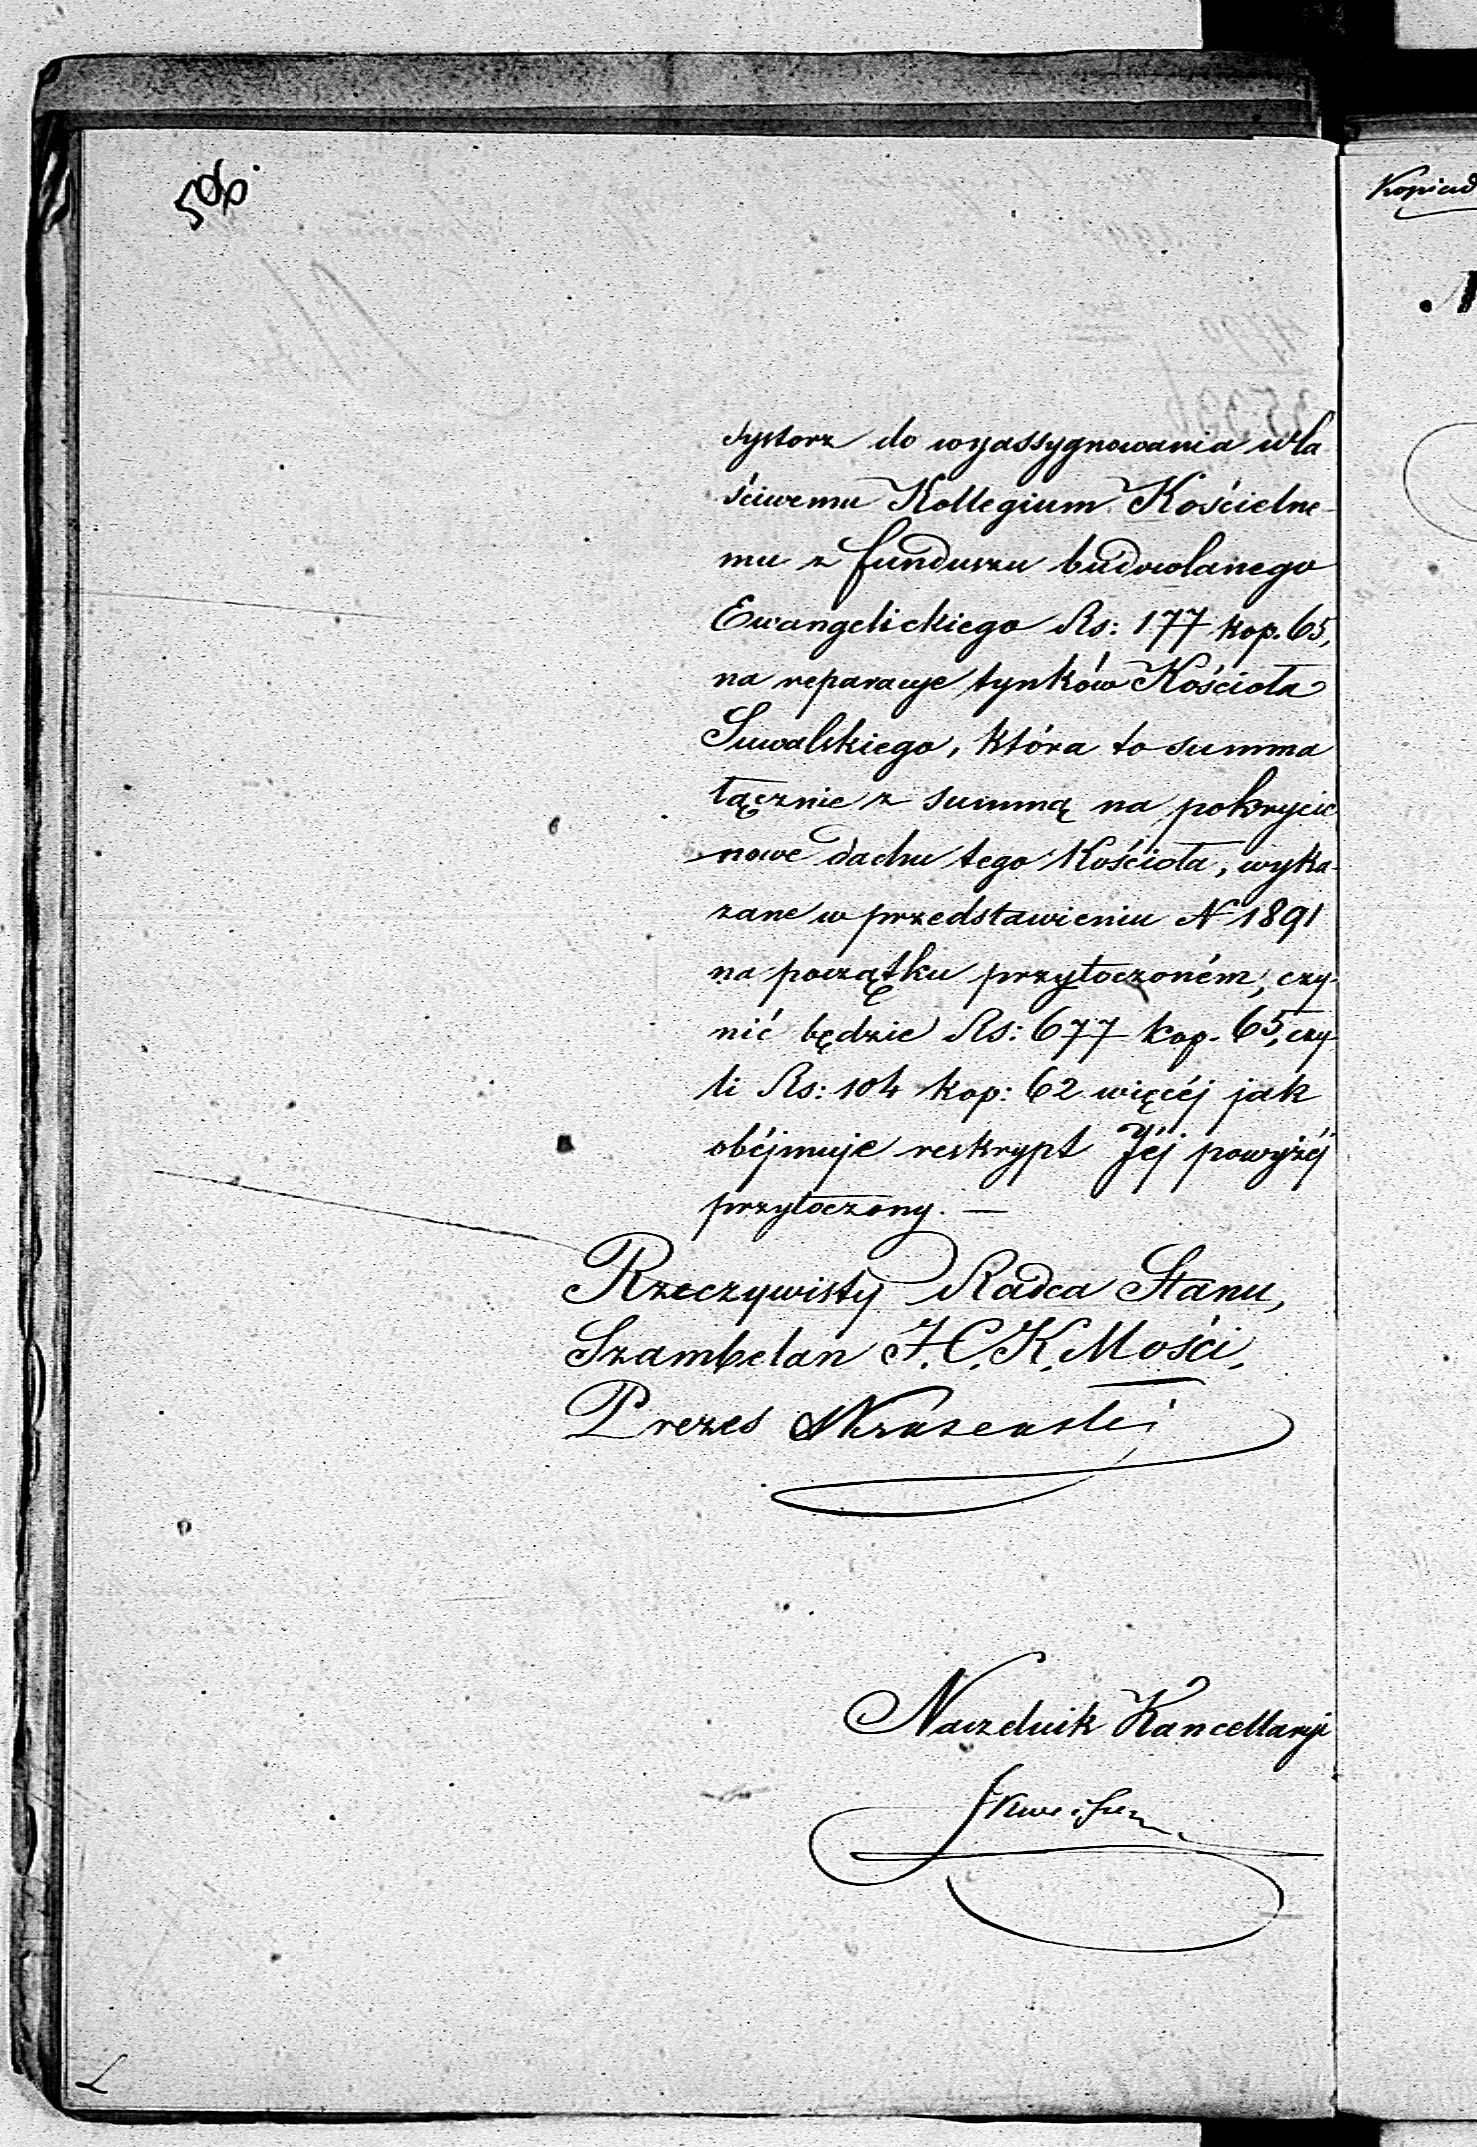 506.
systorz do wyassygnowania wła
ściwemu Kollegium Kościelne-
mu z funduszu budowlanego
Ewangelickiego Rs: 177 kop. 65,
na reparacye tynków Kościoła
Suwalskiego, która to summa
łącznie z summą na pokrycie
nowe dachu tego Kościoła, wyka-
zane w przedstawieniu N 1891
na początku przytoczoném, czy-
nić będzie Rs: 677 kop. 65, czy
li Rs: 104 kop: 62 więcéj jak
obéjmuje reskrypt Jéj powyżéj
przytoczony. —
Rzeczywisty Radca Stanu,
Szambelan J. C. K. Mości,
Prezes
Naczelnik Kancellaryi
L